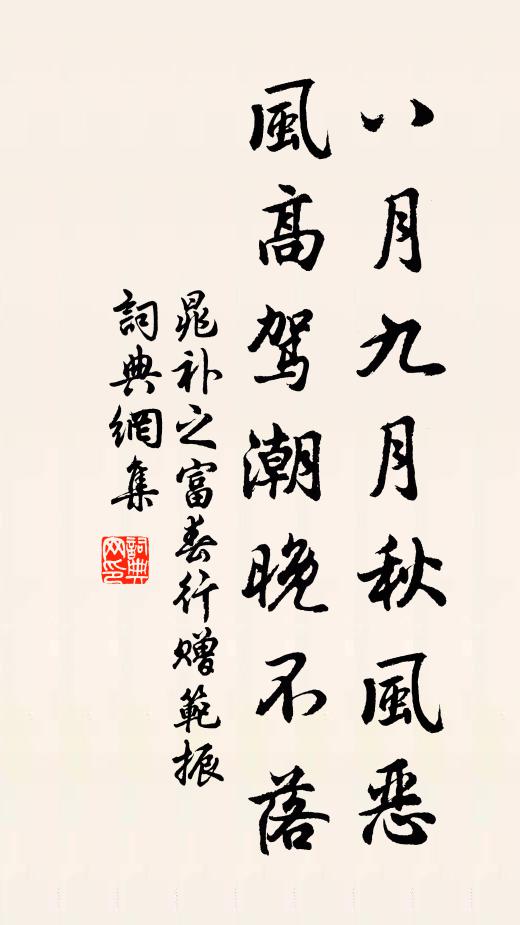 八月九月秋風惡
風高駕潮晚不落
晁补之富春行赠範振
詞典網集
詞典網印